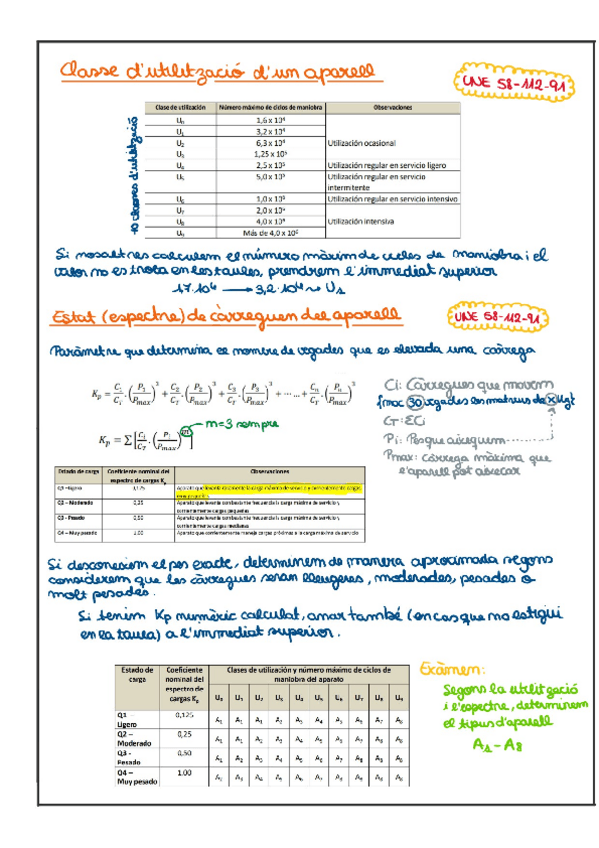 Classe d'utilització d'un aparell
UNE 58-112-91
10 classes d'utilització
Clase de utilización Número máximo de ciclos de maniobra Observaciones
U₀ 1,6 x 10⁴
U₁ 3,2 x 10⁴
U₂ 6,3 x 10⁴ Utilización ocasional
U₃ 1,25 x 10⁵
U₄ 2,5 x 10⁵ Utilización regular en servicio ligero
U₅ 5,0 x 10⁵ Utilización regular en servicio
intermitente
U₆ 1,0 x 10⁶ Utilización regular en servicio intensivo
U₇ 2,0 x 10⁶
U₈ 4,0 x 10⁶ Utilización intensiva
U₉ Más de 4,0 x 10⁶
Si nosaltres calculem el número màxim de cicles de maniobra i el
valor no es troba en les taules, prendrem l'immediat superior
17·10⁴ → 3,2·10⁴ ~ U₁
Estat (espectre) de càrreguen del aparell
UNE 58-112-91
Paràmetre que determina el nombre de vegades que es elevada una càrrega
Kp = C₁/C_T · (P₁/Pmax)³ + C₂/C_T · (P₂/Pmax)³ + C₃/C_T · (P₃/Pmax)³ + ⋯ … + Cn/C_T · (Pn/Pmax)³
Ci: Càrregues que movem
(moc 30 vegades les mateixes de x kg)
CT: ΣCi
Kp = Σ [Ci/C_T · (Pi/Pmax)^m]
m=3 sempre
Pi: Pes que aixequem
Pmax: càrrega màxima que
l'aparell pot aixecar
Estado de carga Coeficiente nominal del
espectro de cargas Kp Observaciones
Q1 -Ligero 0,125 Aparato que levanta raramente la carga máxima de servicio y corrientemente cargas
muy pequeñas
Q2 – Moderado 0,25 Aparato que levanta con bastante frecuencia la carga máxima de servicio y
corrientemente cargas pequeñas
Q3 - Pesado 0,50 Aparato que levanta con bastante frecuencia la carga máxima de servicio y
corrientemente cargas medianas
Q4 – Muy pesado 1,00 Aparato que corrientemente maneja cargas próximas a la carga máxima de servicio
Si desconeixem el pes exacte, determinem de manera aproximada segons
considerem que les càrregues seran lleugeres, moderades, pesades o
molt pesades.
Si tenim Kp numèric calculat, anar també (en cas que no estigui
en la taula) a l'immediat superior.
Estado de
carga Coeficiente
nominal del
espectro de
cargas Kp Clases de utilización y número máximo de ciclos de
maniobra del aparato
U₀ U₁ U₂ U₃ U₄ U₅ U₆ U₇ U₈ U₉
Q1 –
Ligero 0,125 A₁ A₁ A₁ A₂ A₃ A₄ A₅ A₆ A₇ A₈
Q2 –
Moderado 0,25 A₁ A₁ A₂ A₃ A₄ A₅ A₆ A₇ A₈ A₈
Q3 -
Pesado 0,50 A₁ A₂ A₃ A₄ A₅ A₆ A₇ A₈ A₈ A₈
Q4 –
Muy pesado 1.00 A₂ A₃ A₄ A₅ A₆ A₇ A₈ A₈ A₈ A₈
Exàmen:
Segons la utilització
i l'espectre, determinem
el tipus d'aparell
A₁ - A₈